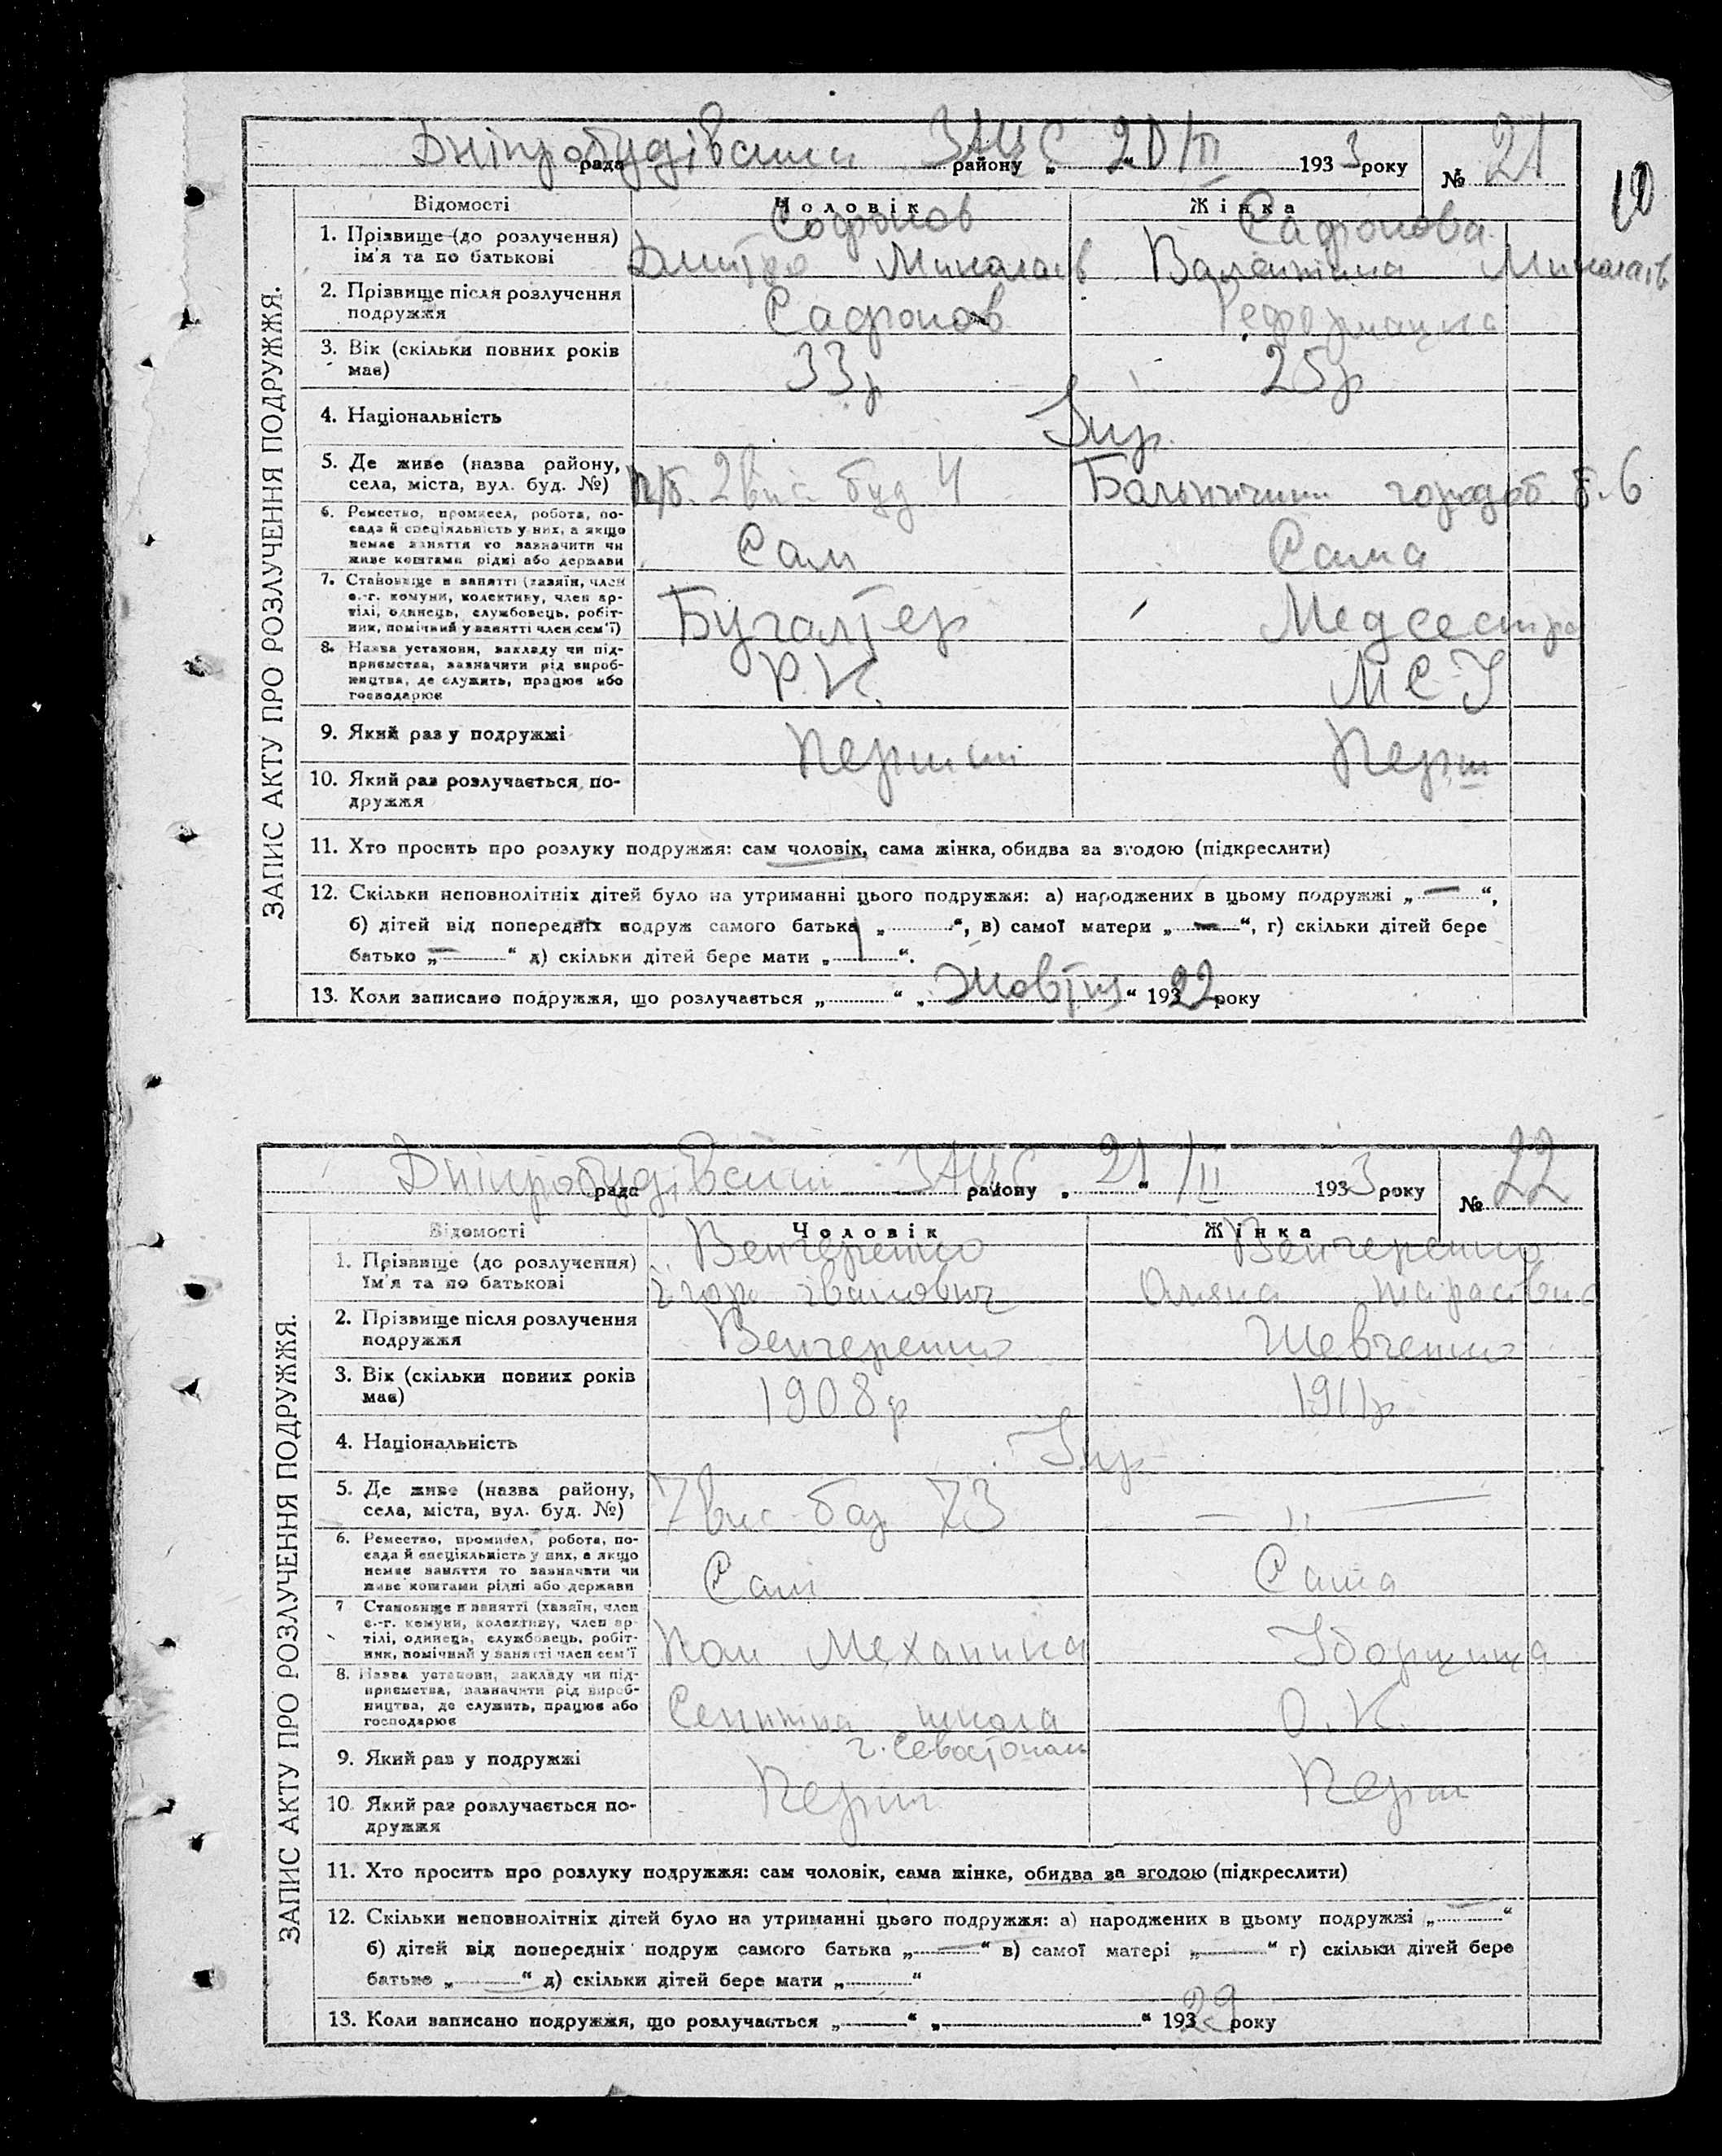 Дніпробудівський ЗАЦС 20/II
рада району „ “ 1933 року № 21
10
ЗАПИС АКТУ ПРО РОЗЛУЧЕННЯ ПОДРУЖЖЯ.
Відомості Чоловік Жінка
1. Прізвище (до розлучення) Софронов Сафронова
ім'я та по батькові Дмитро Миколаєв Валентина Миколаєв
2. Прізвище після розлучення
подружжя Сафронов
3. Вік (скільки повних років 33р 25р
має)
4. Національність Укр.
5. Де живе (назва району,
села, міста, вул. буд. №) п/б. 2 вис. буд 4 Больничний городок б. 6
6. Ремество, промисел, робота, по-
сада й спеціяльність у них, а якщо
немає заняття то зазначити чи
живе коштами рідні або держави Сам Сама
7. Становище в занятті (хазяїн, член
с.-г. комуни, колективу, член ар-
тілі, одинець, службовець, робіт-
ник, помічний у занятті член сем'ї) Бугалтер Медсестра
8. Назва установи, закладу чи під-
приємства, зазначити рід вироб-
ництва, де служить, працює або
господарює Р.К. М С У
9. Який раз у подружжі Перший Перш
10. Який раз розлучається по-
дружжя
11. Хто просить про розлуку подружжя: сам чоловік, сама жінка, обидва за згодою (підкреслити)
12. Скільки неповнолітніх дітей було на утриманні цього подружжя: а) народжених в цьому подружжі „ — “,
б) дітей від попередніх подруж самого батька „ “, в) самої матери „ — “, г) скільки дітей бере
батько „ — “ д) скільки дітей бере мати „ 1 “.
13. Коли записано подружжя, що розлучається „ “ „ Жовтня “ 193 22 року
Дніпробудівський ЗАЦС 21/II
рада району „ “ 1933 року № 22
ЗАПИС АКТУ ПРО РОЗЛУЧЕННЯ ПОДРУЖЖЯ.
Відомості Чоловік Жінка
1. Прізвище (до розлучення) Венчеренко Венчеренко
ім'я та по батькові ігор іванович Оляна тарасівна
2. Прізвище після розлучення
подружжя Венчеренко Шевченко
3. Вік (скільки повних років
має) 1908р 1911р
4. Національність Укр
5. Де живе (назва району,
села, міста, вул. буд. №) 7 вис бар 73 — „ —
6. Ремество, промисел, робота, по-
сада й спеціяльність у них, а якщо
немає заняття то зазначити чи
живе коштами рідні або держави Сам Сама
7 Становище в занятті (хазяїн, член
с.-г. комуни, колективу, член ар-
тілі, одинець, службовець, робіт-
ник, помічний у занятті член сем'ї Пом Механика Уборщица
8. Назва установи, закладу чи під-
приємства, зазначити рід вироб-
ництва, де служить, працює або
господарює школа О.К.
г. Севастополь
9. Який раз у подружжі Перш Перш
10. Який раз розлучається по-
дружжя
11. Хто просить про розлуку подружжя: сам чоловік, сама жінка, обидва за згодою (підкреслити)
12. Скільки неповнолітніх дітей було на утриманні цього подружжя: а) народжених в цьому подружжі „ — “
б) дітей від попередніх подруж самого батька „ — “ в) самої матері „ “ г) скільки дітей бере
батько „ “ д) скільки дітей бере мати „ “
13. Коли записано подружжя, що розлучається „ “ „ “ 193 29 року